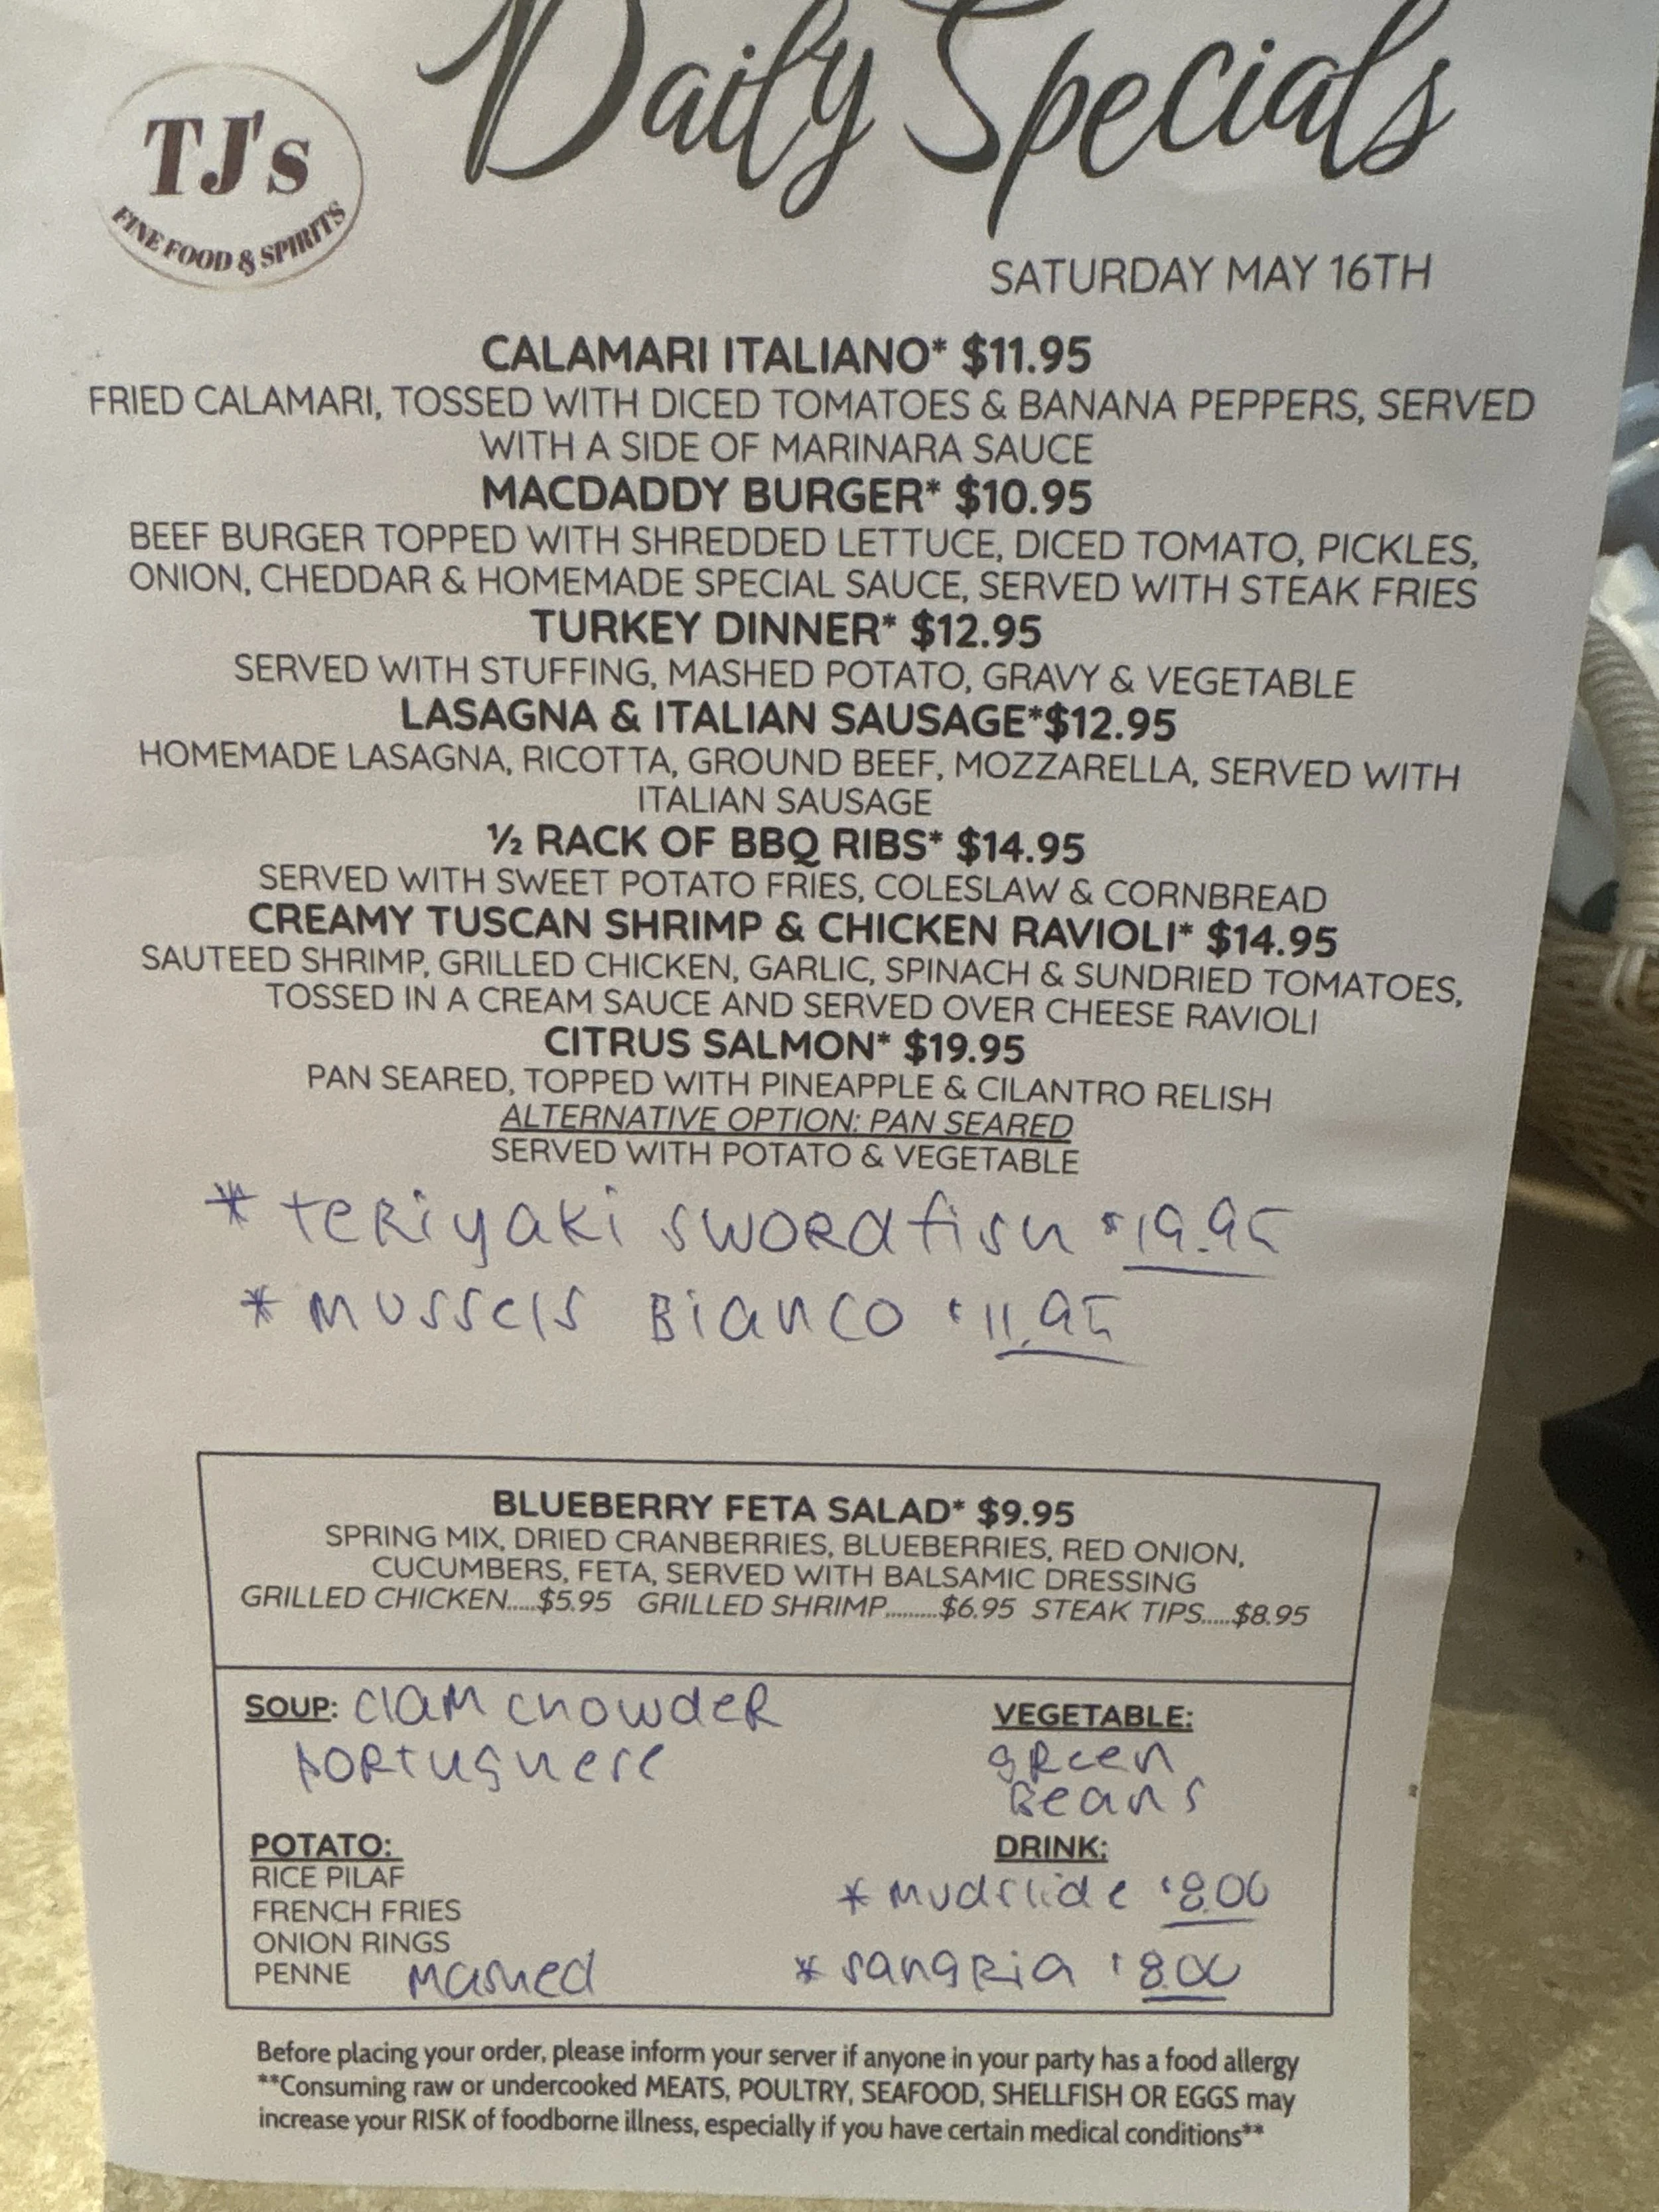 Daily Specials
TJ's
FINE FOOD & SPIRITS
SATURDAY MAY 16TH
CALAMARI ITALIANO* $11.95
FRIED CALAMARI, TOSSED WITH DICED TOMATOES & BANANA PEPPERS, SERVED
WITH A SIDE OF MARINARA SAUCE
MACDADDY BURGER* $10.95
BEEF BURGER TOPPED WITH SHREDDED LETTUCE, DICED TOMATO, PICKLES,
ONION, CHEDDAR & HOMEMADE SPECIAL SAUCE, SERVED WITH STEAK FRIES
TURKEY DINNER* $12.95
SERVED WITH STUFFING, MASHED POTATO, GRAVY & VEGETABLE
LASAGNA & ITALIAN SAUSAGE*$12.95
HOMEMADE LASAGNA, RICOTTA, GROUND BEEF, MOZZARELLA, SERVED WITH
ITALIAN SAUSAGE
½ RACK OF BBQ RIBS* $14.95
SERVED WITH SWEET POTATO FRIES, COLESLAW & CORNBREAD
CREAMY TUSCAN SHRIMP & CHICKEN RAVIOLI* $14.95
SAUTEED SHRIMP, GRILLED CHICKEN, GARLIC, SPINACH & SUNDRIED TOMATOES,
TOSSED IN A CREAM SAUCE AND SERVED OVER CHEESE RAVIOLI
CITRUS SALMON* $19.95
PAN SEARED, TOPPED WITH PINEAPPLE & CILANTRO RELISH
ALTERNATIVE OPTION: PAN SEARED
SERVED WITH POTATO & VEGETABLE
* teRiyaki swoRdfish $19.95
* Mussels Bianco $11.95
BLUEBERRY FETA SALAD* $9.95
SPRING MIX, DRIED CRANBERRIES, BLUEBERRIES, RED ONION,
CUCUMBERS, FETA, SERVED WITH BALSAMIC DRESSING
GRILLED CHICKEN.....$5.95 GRILLED SHRIMP.........$6.95 STEAK TIPS.....$8.95
SOUP: clam chowdeR
poRtughese
VEGETABLE:
gReen
Beans
POTATO:
RICE PILAF
FRENCH FRIES
ONION RINGS
PENNE Mashed
DRINK:
* Mudslide $8.00
* sangRia $8.00
Before placing your order, please inform your server if anyone in your party has a food allergy
**Consuming raw or undercooked MEATS, POULTRY, SEAFOOD, SHELLFISH OR EGGS may
increase your RISK of foodborne illness, especially if you have certain medical conditions**